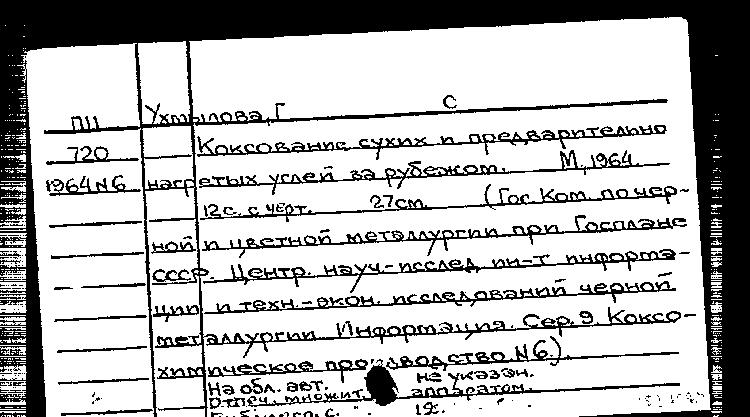 ПII Ухмылова, Г С
720 Коксование сухих и предварительно
1964 N6 нагретых углей за рубежом. М, 1964.
12 с. с черт. 27 см. (Гос. Ком. по чер-
ной и цветной металлургии при Госплане
СССР. Центр. науч.-исслед. ин-т информа-
ции и техн.-экон. исследований черной
металлургии. Информация. Сер. 9. Коксо-
химическое производство N6.)
На обл. авт. не указан.
Отпеч. множит. аппаратом.
с. 12.